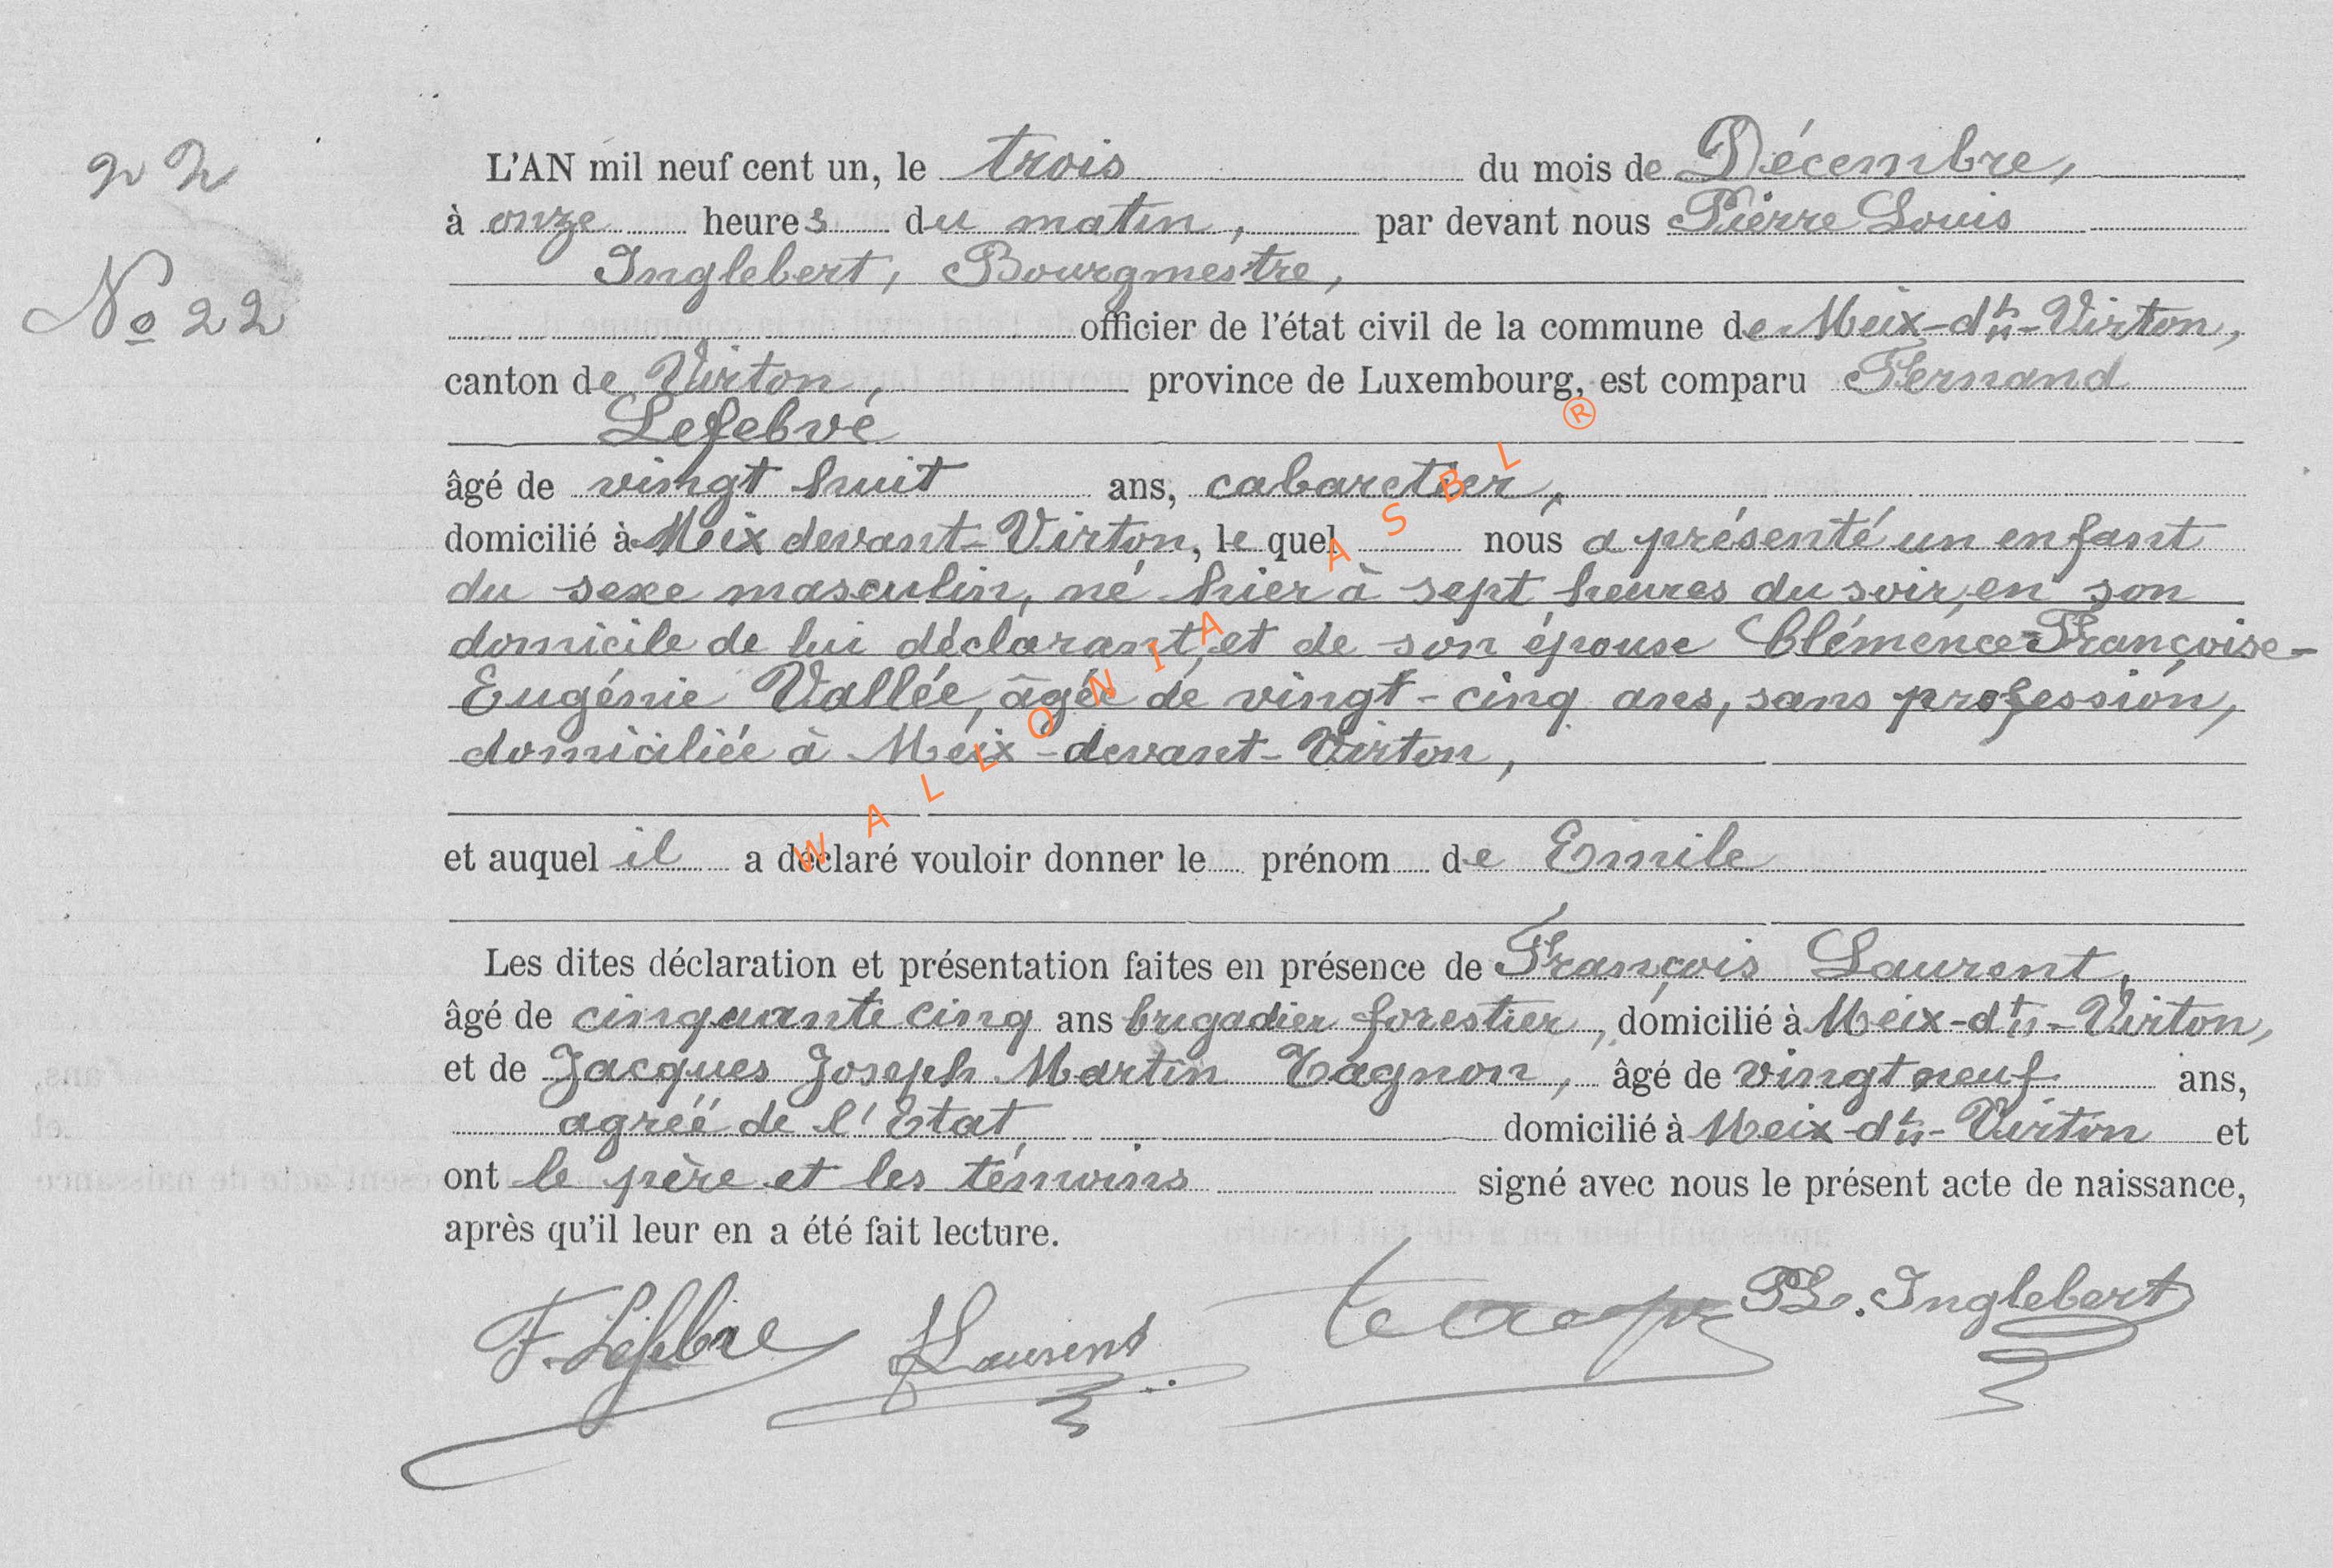 22
No 22
L'AN mil neuf cent un, le trois du mois de Décembre,
à onze heures du matin, par devant nous Pierre Louis
Inglebert, Bourgmestre,
officier de l'état civil de la commune de Meix-dt-Virton,
canton de Virton, province de Luxembourg, est comparu Fernand
Lefebvé
âgé de vingt huit ans, cabaretier,
domicilié à Meix devant-Virton, le quel nous a présenté un enfant
du sexe masculin, né hier à sept heures du soir, en son
domicile de lui déclarant, et de son épouse Clémence-Françoise-
Eugénie Vallée, âgée de vingt-cinq ans, sans profession,
domiciliée à Meix-devant-Virton,
et auquel il a déclaré vouloir donner le prénom de Emile
Les dites déclaration et présentation faites en présence de François Laurent,
âgé de cinquante cinq ans brigadier forestier, domicilié à Meix-dt-Virton,
et de Jacques Joseph Martin Tagnon, âgé de vingt neuf ans,
agréé de l'Etat, domicilié à Meix-dt-Virton et
ont le père et les témoins signé avec nous le présent acte de naissance,
après qu'il leur en a été fait lecture.
F. Lefebve Laurent PL. Inglebert
WALLONIA ASBL ®